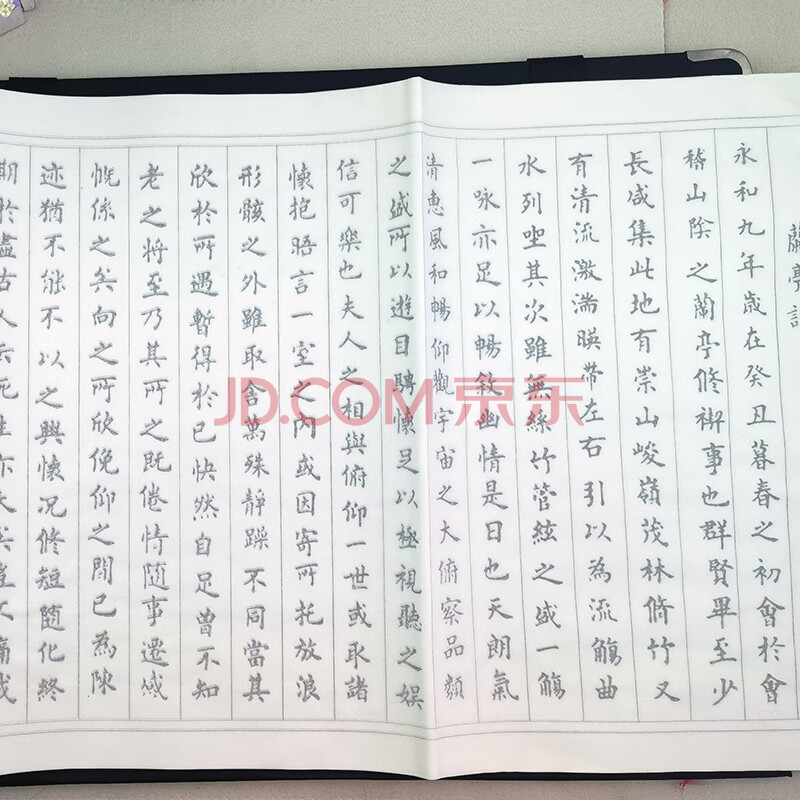 蘭亭記
永和九年歲在癸丑暮春之初會於會
稽山陰之蘭亭修禊事也群賢畢至少
長咸集此地有崇山峻嶺茂林脩竹又
有清流激湍暎帶左右引以為流觴曲
水列坐其次雖無絲竹管絃之盛一觴
一咏亦足以暢敘幽情是日也天朗氣
清惠風和暢仰觀宇宙之大俯察品類
之盛所以遊目騁懷足以極視聽之娛
信可樂也夫人之相與俯仰一世或取諸
懷抱晤言一室之內或因寄所托放浪
形骸之外雖取舍萬殊靜躁不同當其
欣於所遇暫得於己快然自足曾不知
老之將至乃其所之既倦情隨事遷感
慨係之矣向之所欣俛仰之間已為陳
迹猶不能不以之興懷況修短隨化終
期於盡古人云死生亦大矣豈不痛哉
JD.COM 京东